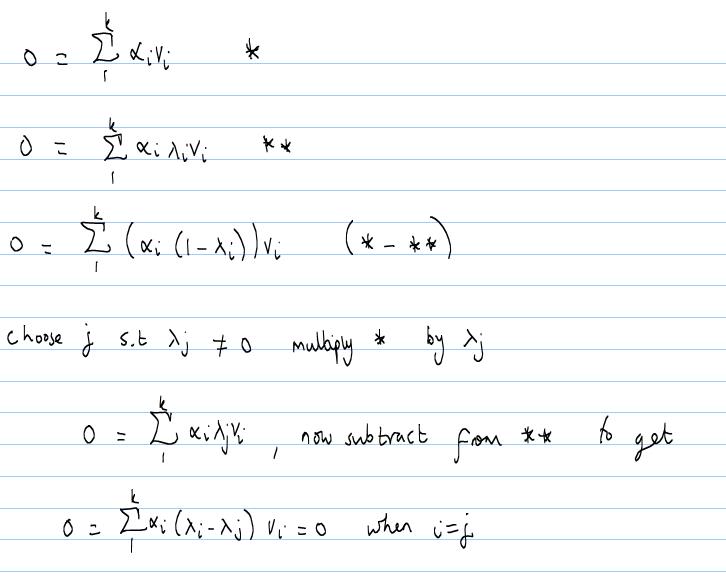 0 = Σ₁ᵏ αᵢvᵢ *
0 = Σ₁ᵏ αᵢλᵢvᵢ **
0 = Σ₁ᵏ (αᵢ (1-λᵢ))vᵢ (* - **)
choose j s.t λⱼ ≠ 0 multiply * by λⱼ
0 = Σ₁ᵏ αᵢλⱼvᵢ , now subtract from ** to get
0 = Σ₁ᵏ αᵢ (λᵢ-λⱼ) vᵢ = 0 when i=j